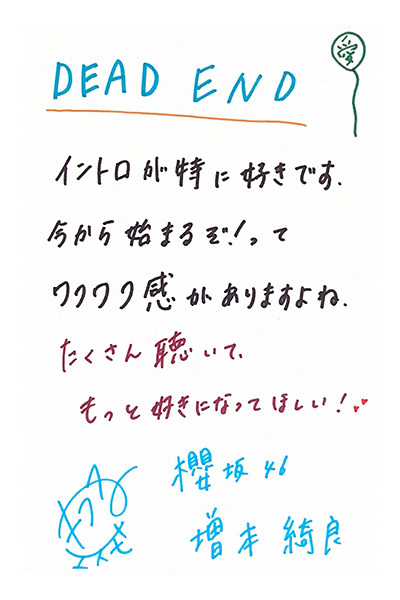 DEAD END
イントロが特に好きです.
今から始まるぞ!って
ワクワク感がありますよね.
たくさん聴いて、
もっと好きになってほしい!
櫻坂46
増本綺良